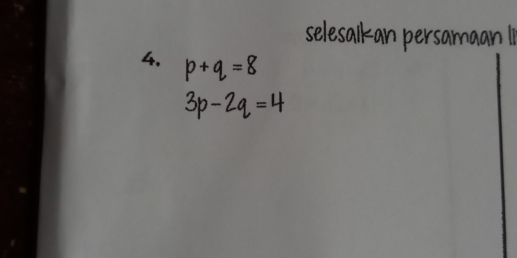 selesaikan persamaan
4. p+q=8
3p-2q=4